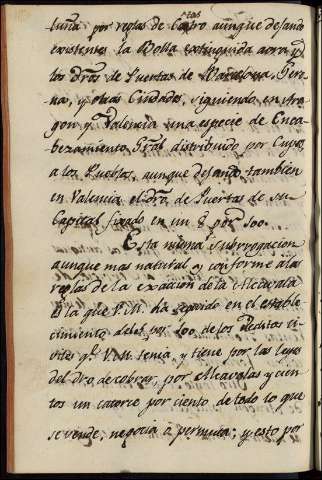 luña por reglas de Castro aunque dejando
existentes la Bolla extinguida aora y
los dros. de Puertas de Barcelona, Gero
na, y otras Ciudades, siguiendo en Ara
gon y Valencia una especie de Enca
bezamiento Gral distribuido por Cupos
a los Pueblos, aunque dejando tambien
en Valencia el dro. de Puertas de su
Capital fixado en un 8 por 100.
Esta misma Subrogacion
aunque mas natural y conforme a las
reglas de la exaccion de la Alcavala
es la que V.M. ha seguido en el estable
cimiento del por 100 de los
q.e V.M. tenia, y tiene por las leyes
del dro. de cobrar por Alcavalas y cien
tos un catorce por ciento de todo lo que
se vende, negocia ò permuta; y esto por